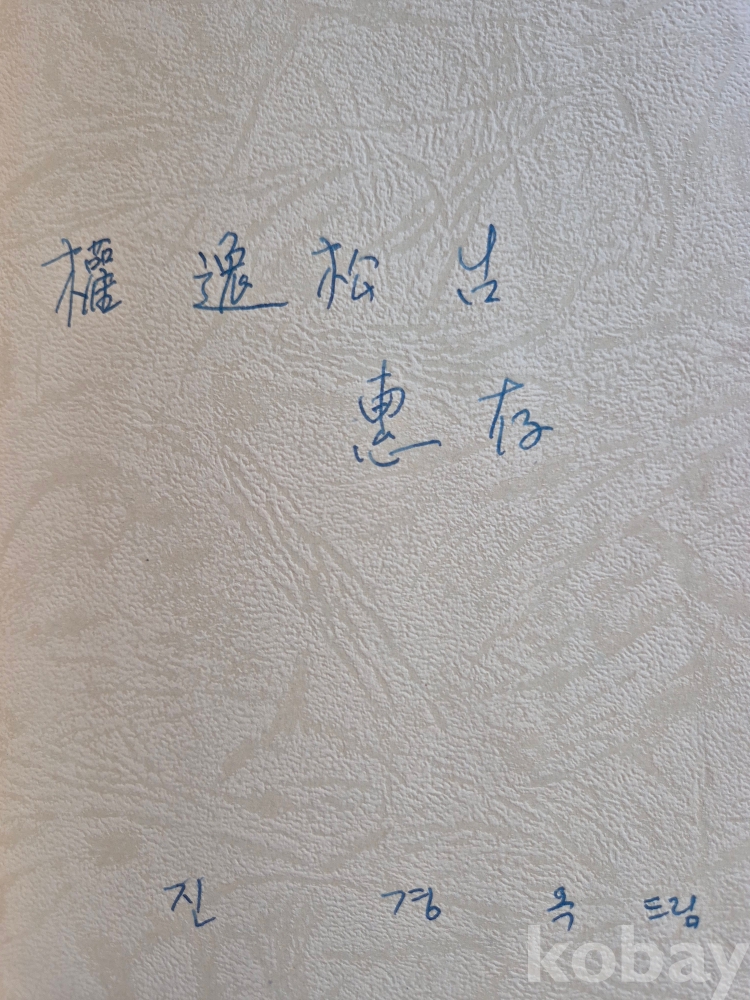 權 逸 松
惠 存
진 경 옥 드림
kobay